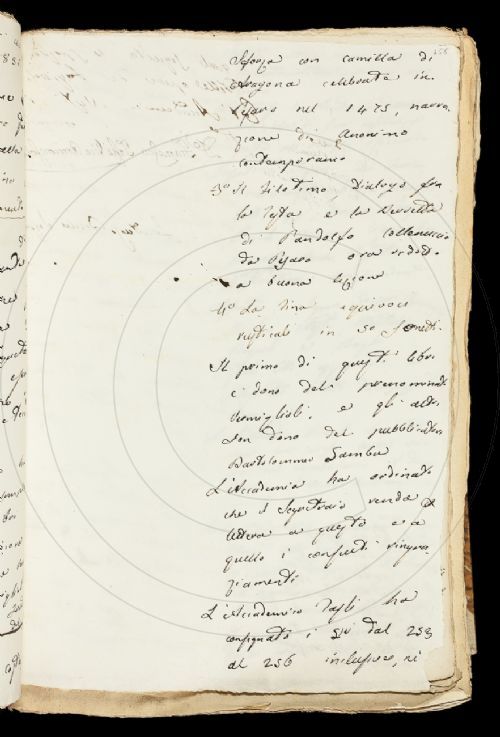 Sforza con Camilla di
Aragona celebrata in
Pesaro nel 1475, narra
zione di Anonimo
contemporaneo
3º Il Filotimo, Dialogo fra
la Testa e la Berretta
di Pandolfo Collenuccio
da Pesaro ora ridott
a buona lezione
4º La Tina equivoci
rusticali in 50 Sonetti
Il primo di questi libri
è dono del prenominat
Vermiglioli, e gli altri
son dono del pubblicatore
Bartolommeo Gamba
L'Accademia ha ordinato
che il Segretario renda
lettera a questo e a
quello i consueti ringra
ziamenti
L'Accademico ha
consegnato i dal 253
al 256 inclusive, ri